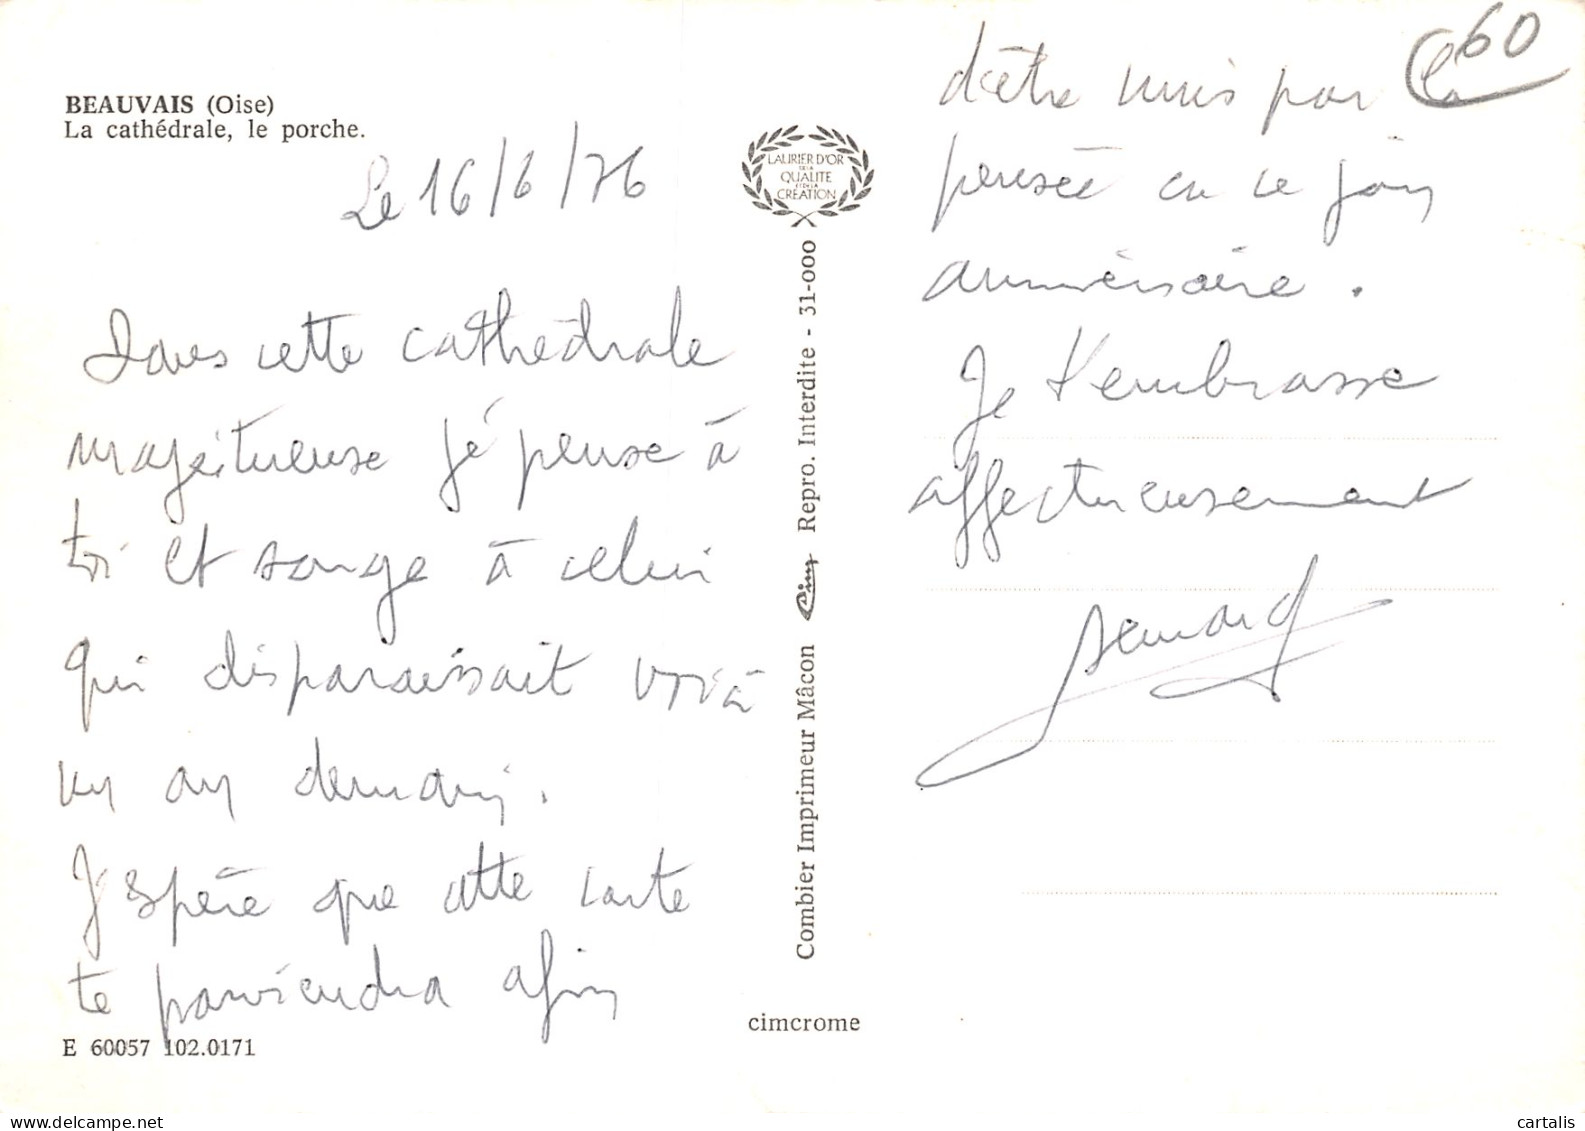 BEAUVAIS (Oise)
La cathédrale, le porche.
Le 16/6/76
Dans cette cathédrale
majestueuse je pense à
toi et songe à celui
qui disparaissait voilà
un an demain.
J'espère que cette carte
te parviendra afin
E 60057 102.0171
LAURIER D'OR
DE LA
QUALITE
ET DE LA
CRÉATION
Combier Imprimeur Mâcon Cim Repro. Interdite - 31-000
cimcrome
60
d'être unis par la
pensée en ce jour
anniversaire.
Je t'embrasse
affectueusement
Bernard
cartalis